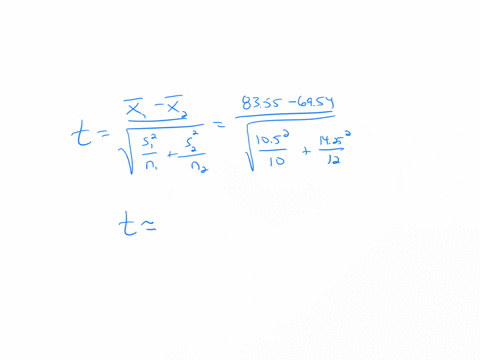 t = (x̄₁ - x̄₂) / √(s₁²/n₁ + s₂²/n₂) = (83.55 - 69.54) / √(10.5²/10 + 14.25²/12)
t ≈